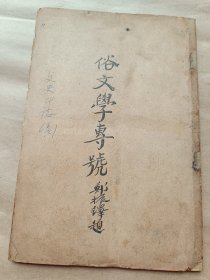 俗文學專號
鄭振鐸題